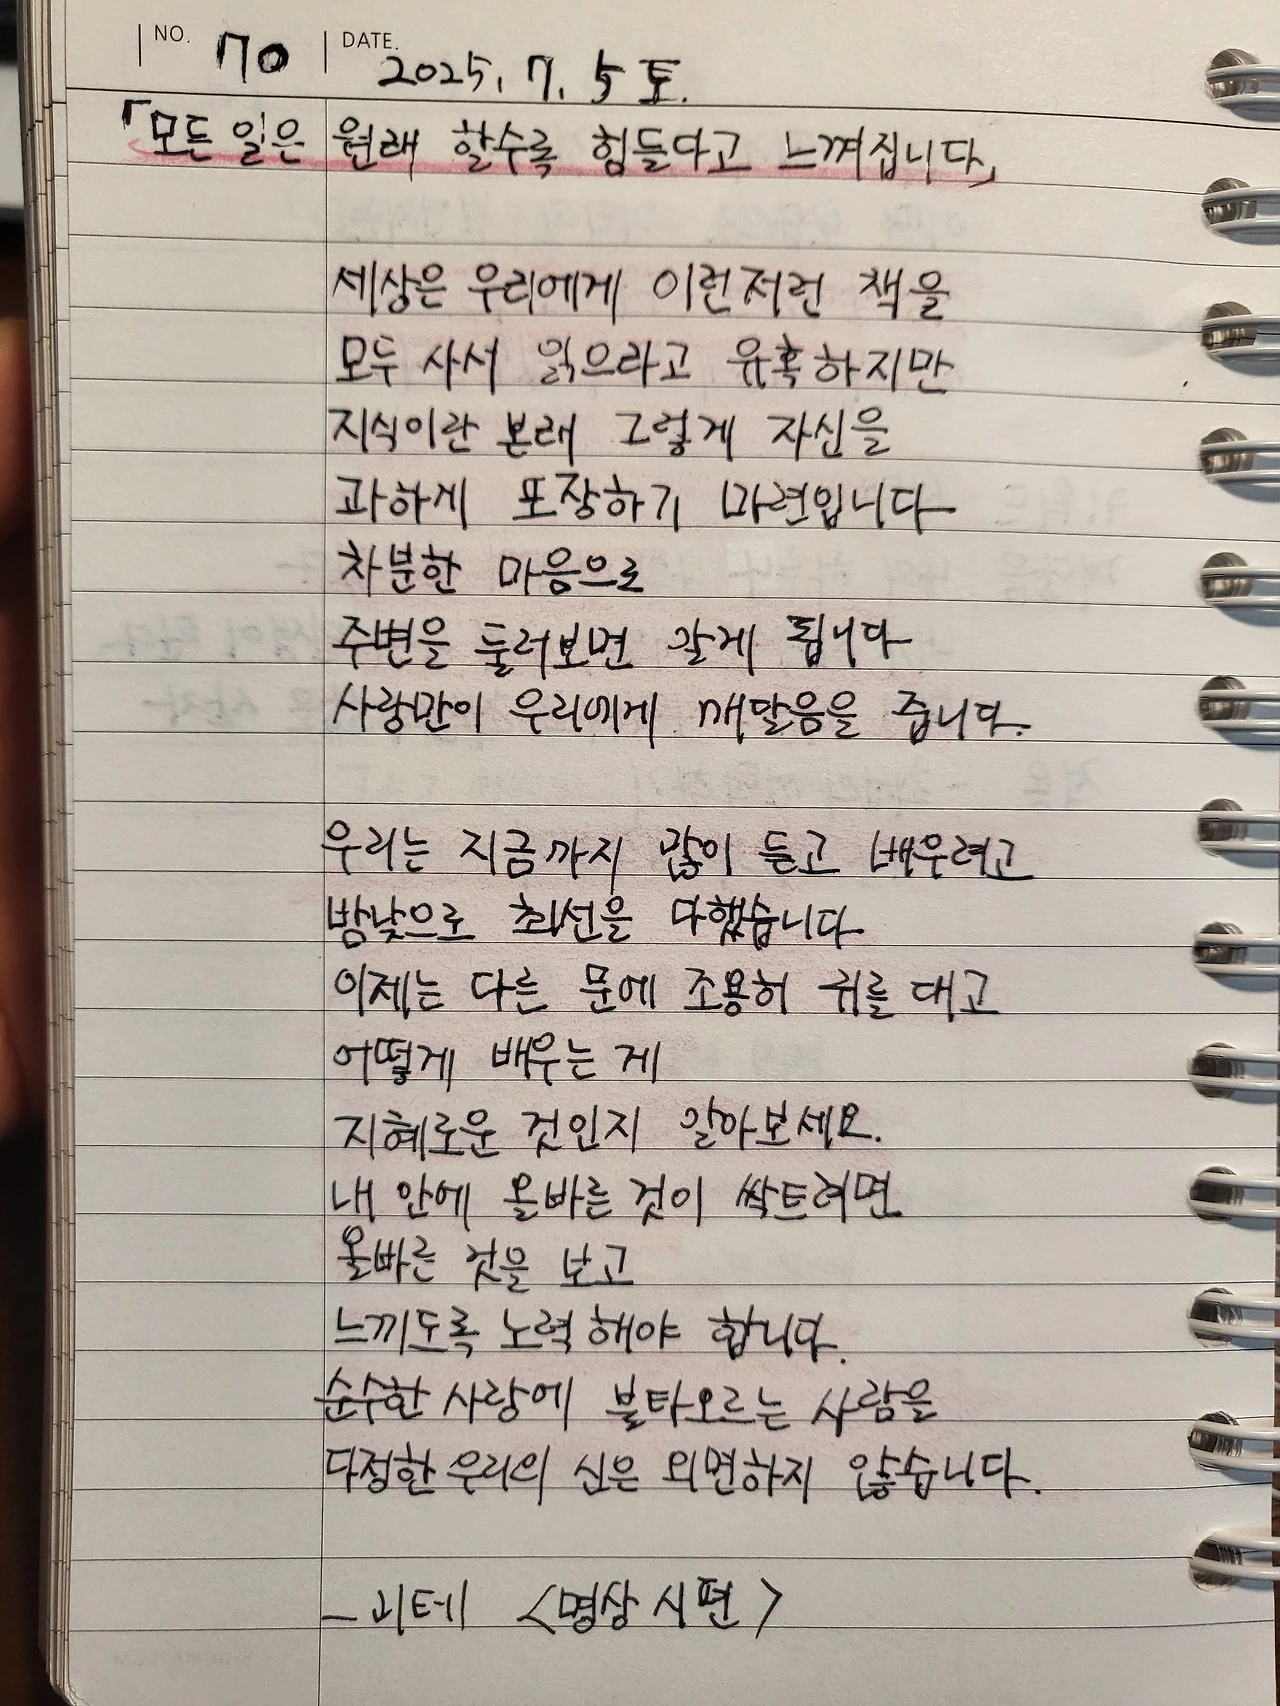 NO. 70 DATE. 2025. 7. 5 토.
「모든 일은 원래 할수록 힘들다고 느껴집니다」
세상은 우리에게 이런저런 책을
모두 사서 읽으라고 유혹하지만
지식이란 본래 그렇게 자신을
과하게 포장하기 마련입니다
차분한 마음으로
주변을 둘러보면 알게 됩니다
사랑만이 우리에게 깨달음을 줍니다.
우리는 지금까지 많이 듣고 배우려고
밤낮으로 최선을 다했습니다
이제는 다른 문에 조용히 귀를 대고
어떻게 배우는 게
지혜로운 것인지 알아보세요.
내 안에 올바른 것이 싹트려면
올바른 것을 보고
느끼도록 노력해야 합니다.
순수한 사랑에 불타오르는 사람을
다정한 우리의 신은 외면하지 않습니다.
- 괴테 <명상 시편>